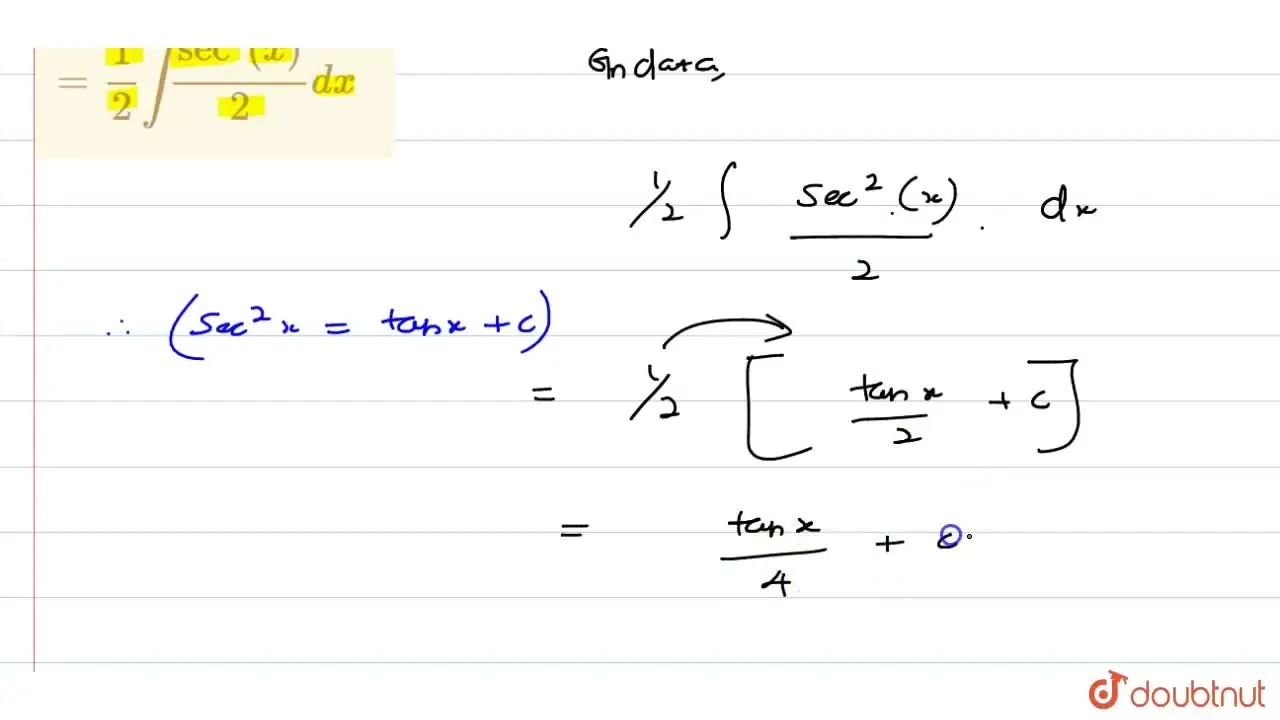 = 1/2 ∫ sec (x)/2 dx
Gn data,
1/2 ∫ sec² (x)/2 . dx
∴ (sec² x = tan x + c)
= 1/2 [ tan x/2 + c ]
= tan x/4 + c
doubtnut